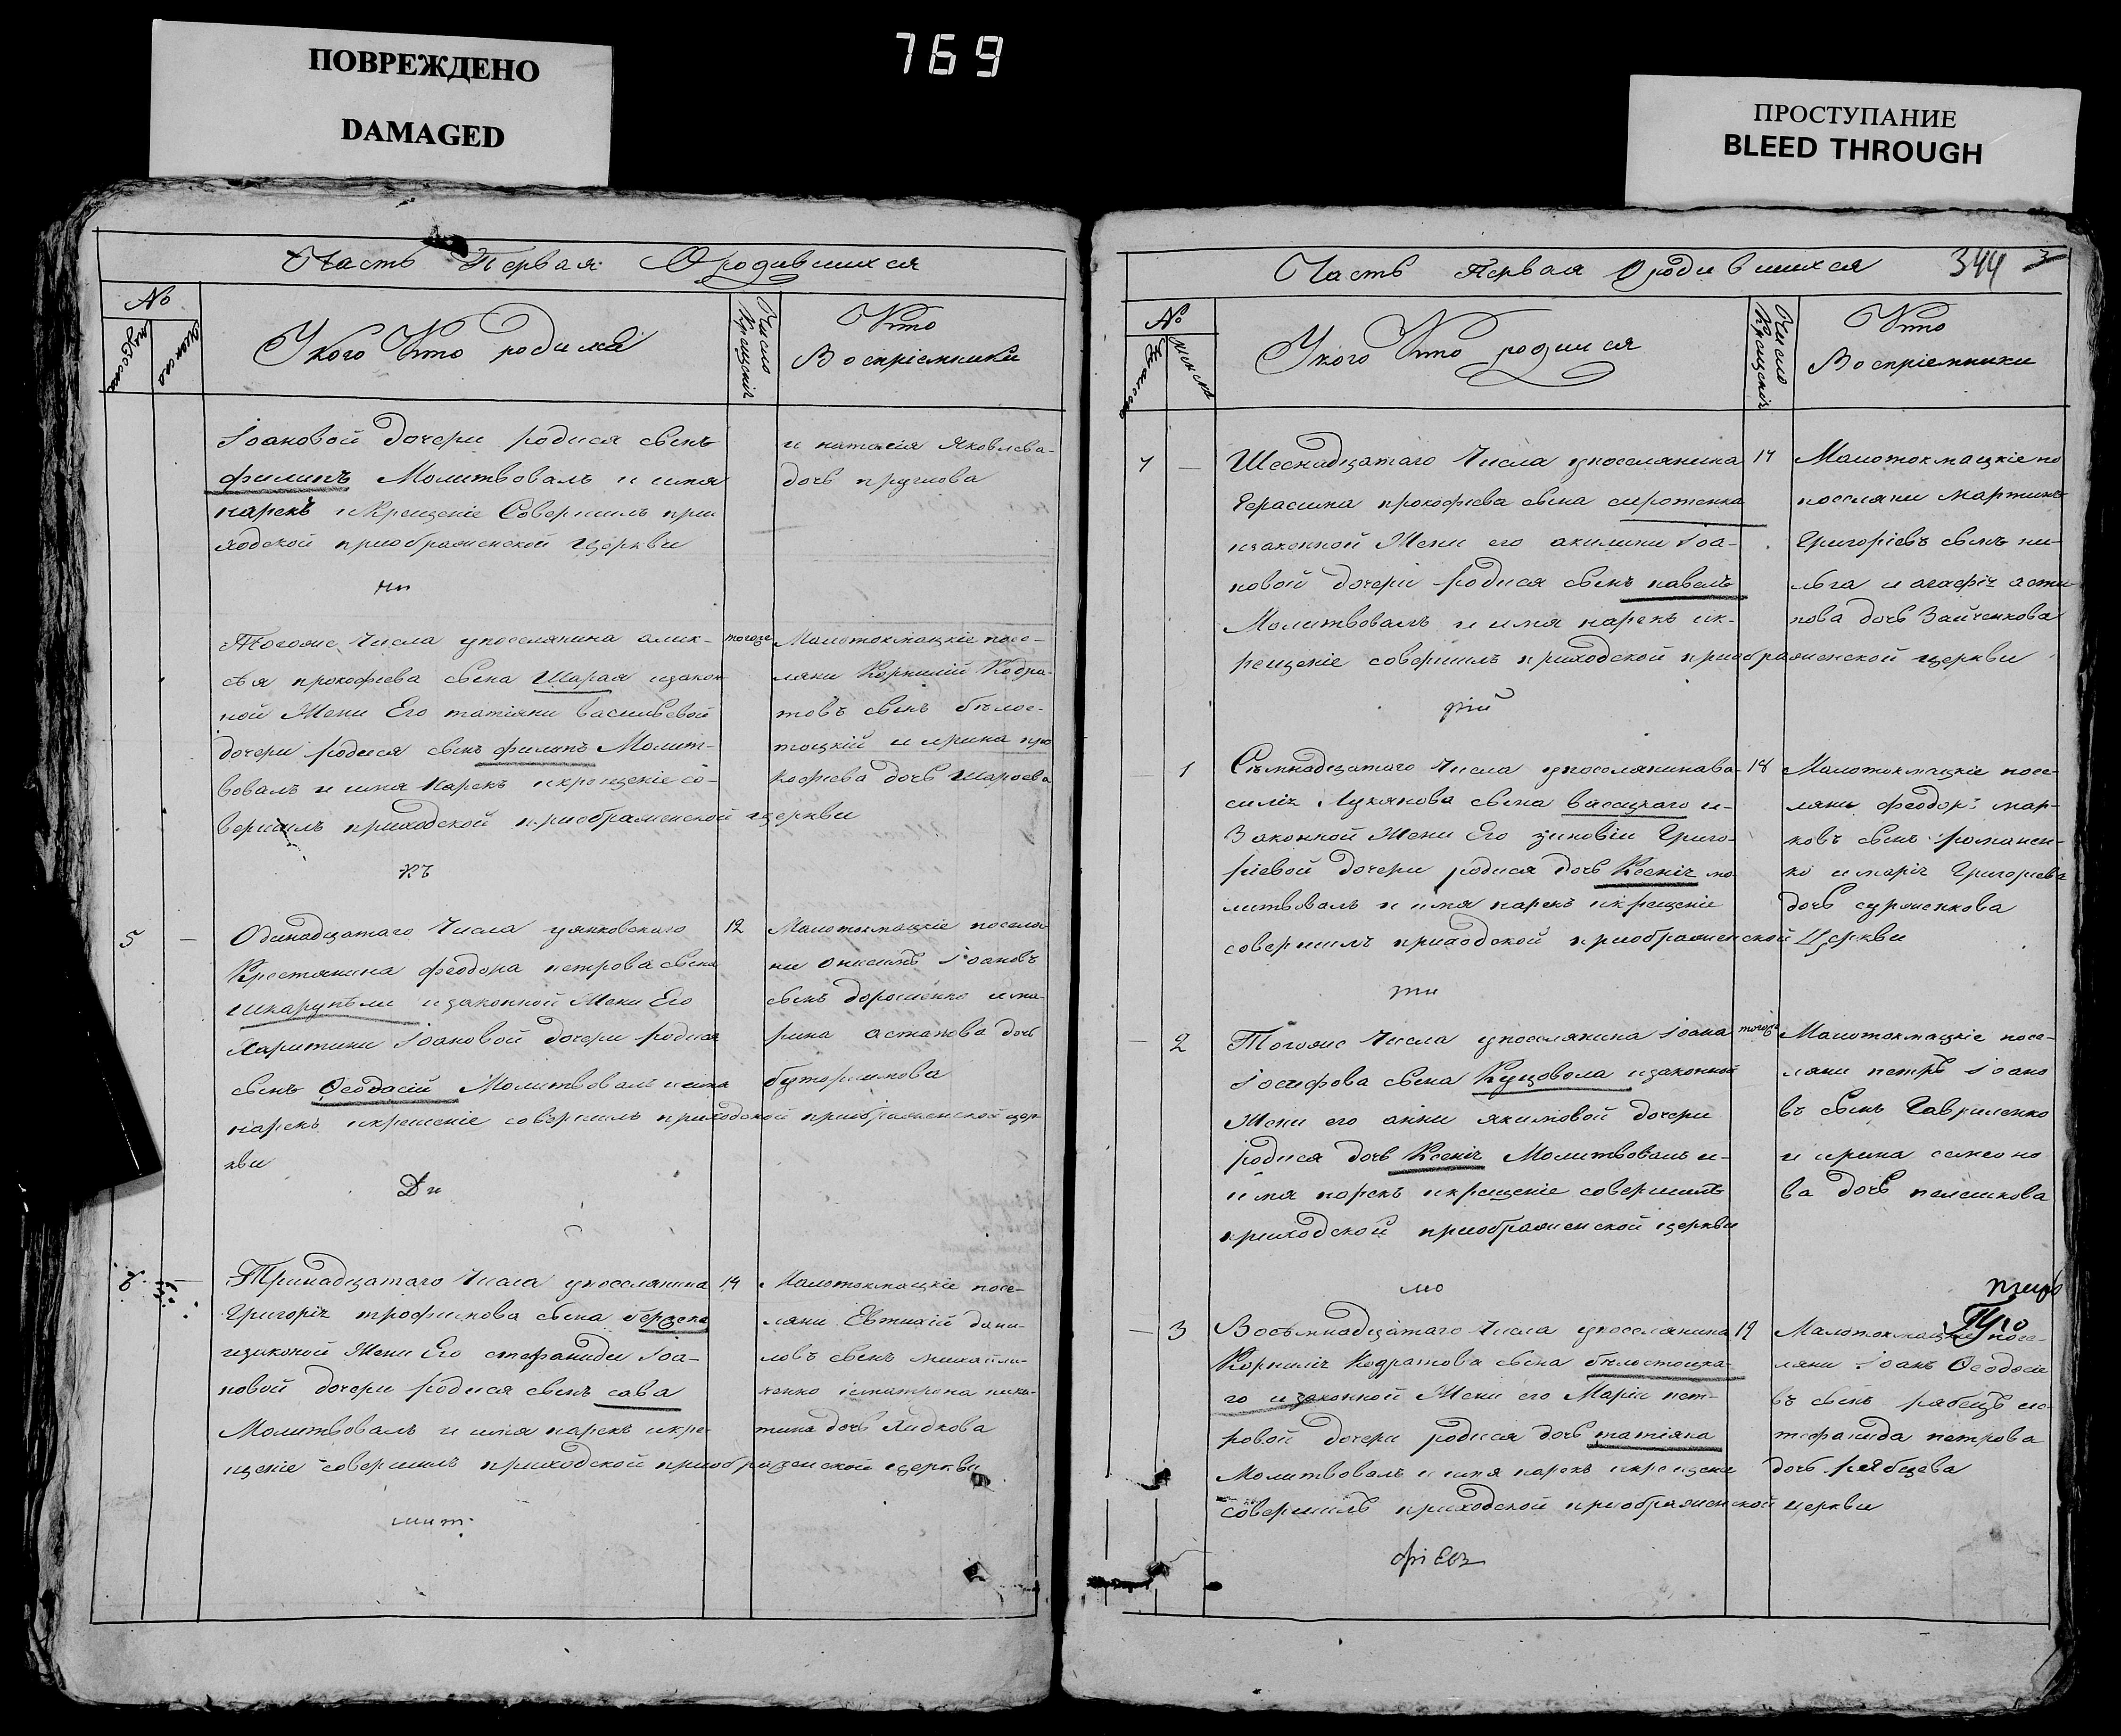 ПОВРЕЖДЕНО
DAMAGED
769
ПРОСТУПАНИЕ
BLEED THROUGH
Часть Первая Ородившихся
№
Укого Кто родился
Число Крещенія
Кто
Воспріемники
Іоановой дочери родися сынъ
филипъ Молитвовалъ и имя
нарекъ икрещеніе Совершилъ при
ходской приображенской церкви
и наталія Яковлева
дочь
Тогоже Числа упоселянина алик-
сѣя прокофіева сына Шарая изакон
ной Жени Его татіяни василіевой
дочери родися сынъ филипъ Молит-
вовалъ и имя нарекъ икрещеніе со-
вершилъ приходской приображенской церкви
тогоже
Малотокмацкіе посе-
ляни Корнилій Кодра-
товъ сынъ бѣлос-
тоцкій и ирина про
кофіева дочь Шароева
5
Одинадцатаго Числа
Крестянина феодора петрова сына
шкарупѣли изаконной Жени Его
Харитини Іоановой дочери родися
сынъ Ѳеодосій Молитвовалъ иимя
нарекъ икрещеніе совершилъ приходской приображенской цер
кви
12
Малотокмацкіе поселя
ни онисимъ Іоановъ
сынъ дорошенко има-
рина астапова дочь
6
Тринадцатаго Числа упоселянина
Григорія трофимова сына
изаконой Жени Его стефаниди Іоа-
новой дочери родися сынъ сава
Молитвовалъ и имя нарекъ икре-
щеніе совершилъ приходской приображенской церкви
14
Малотокмацкіе посе-
ляни Евтихій дани-
ловъ сынъ михайли-
ченко іматрона ники-
тина дочь Хидкова
Часть первая Ородившихся
344
3
№
Укого Кто родился
Число Крещенія
Кто
Воспріемники
7
Шеснадцатаго Числа упоселянина
Герасима прокофіева сына сиротенка
изаконной Жени его акилини Іоа-
новой дочери родися сынъ павелъ
Молитвовалъ и имя нарекъ ик-
рещеніе совершилъ приходской приображенской церкви
17
Малотокмацкіе по
поселяни мартинъ
Григоріевъ сынъ
и агафія
пова дочь Зайченкова
1
Сѣмнадцатаго Числа упоселянинава
силія Лукянова сына васицкаго и-
Законной Жени Его зиновіи Григо-
ріевой дочери родися дочь Ксенія мо
литвовалъ и имя нарекъ икрещеніе
совершилъ приходской приображенской Церкви
18
Малотокмацкіе посе-
ляни феодоръ мар-
ковъ сынъ романен-
ко имарія Григориева
дочь
2
Тогоже Числа упоселянина Іоана
Іосифова сына Куцовола изаконной
Жени его анни якимовой дочери
родися дочь Ксенія Молитвовалъ и-
имя нарекъ икрещеніе совершилъ
приходской приображенской церкви
тогоже
Малотокмацкіе посе-
ляни петръ Іоано
въ сынъ Гавриленко
и ирина симеоно
ва дочь
3
Восѣмнадцатаго Числа упоселянина
Корнилія Кодратова сына бѣлостоцка-
го изаконной Жени его Маріи пет-
ровой дочери родися дочь татіяна
Молитвовалъ и имя нарекъ икрещени
совершилъ приходской приображенской церкви
19
Малотокмацкіе посе-
ляни Іоанъ Ѳеодосіе
въ сынъ рябецъ ис-
тефанида петрова
дочь рябцева